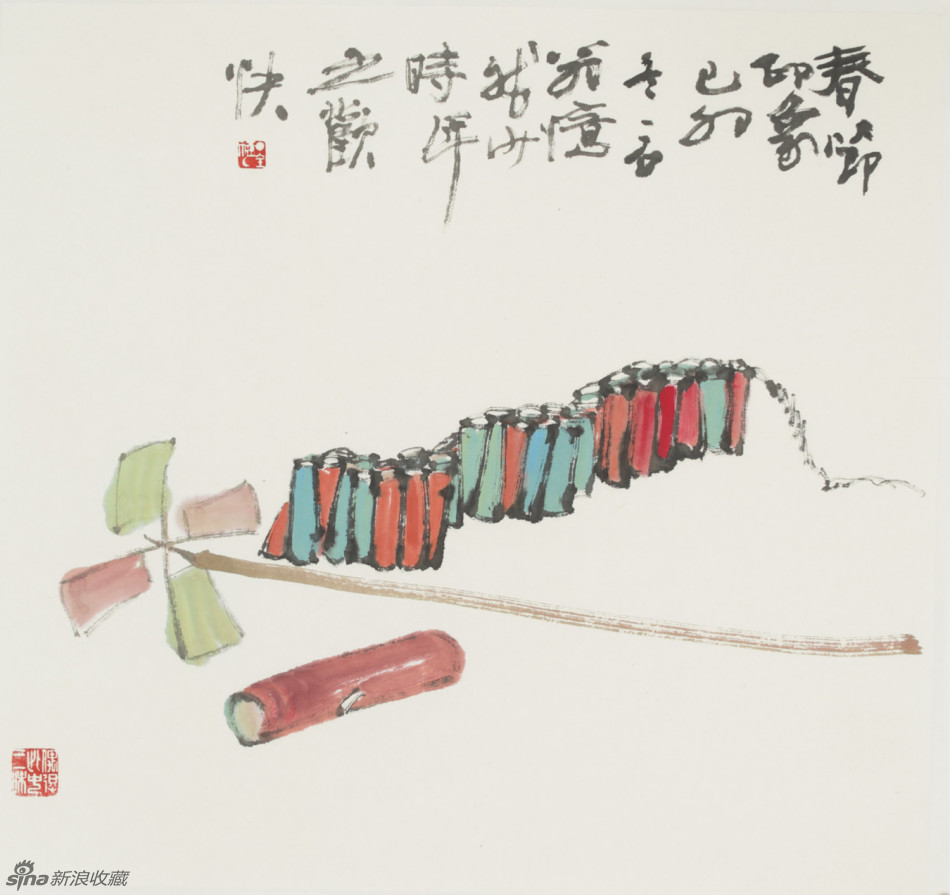 春節
印象
己卯
冬一
憶
少
時年
之歡
快
sina新浪收藏